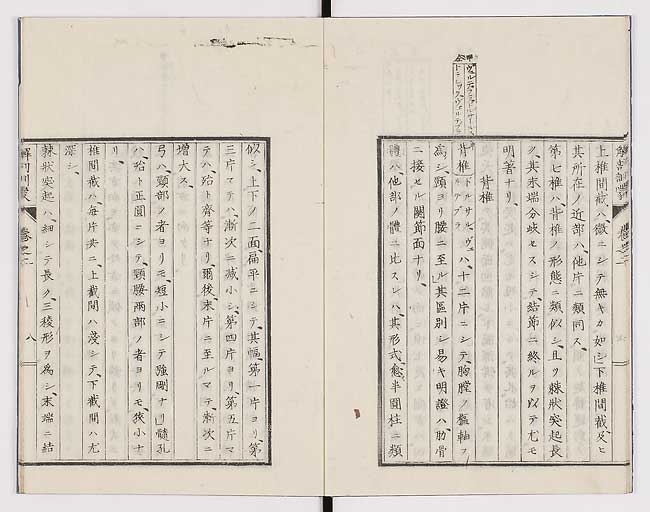 上椎間截ハ、微ニシテ無キカ如シ」下椎間截、及ヒ
其所在ノ近部ハ、他片ニ類同ス、
第七椎ハ、背椎ノ形態ニ類似シ、且ツ棘状突起長
ク、其末端分岐セスシテ、結節ニ終ルヲ以テ尤モ
明著ナリ、
背椎
背椎ハ、十二片ニシテ、胸膛ノ樞軸ヲ
為シ、頸ヨリ腰ニ至ル」其區別シ易キ明證ハ、肋骨
ニ接セル關節面ナリ、
體ハ、他部ノ體ニ比スレハ、其形式、愈半圓柱ニ類
似シ、上下ノ二面、扁平ニシテ、其幅、第一片ヨリ、第
三片マテハ、漸次ニ減小シ、第四片ヨリ、第五片マ
テハ、殆ト齊等ナリ、爾後、末片ニ至ルマテ、漸次ニ
增大ス、
弓ハ、頸部ノ者ヨリモ、短小ニシテ強剛ナリ」髓孔
ハ、殆ト正圓ニシテ、頸腰兩部ノ者ヨリモ、狹小ナ
リ、
椎間截ハ、每片共ニ、上截間ハ淺シテ、下截間ハ尤
深シ、
棘状突起ハ、細シテ長ク、三稜形ヲ為シ、末端ニ結
八